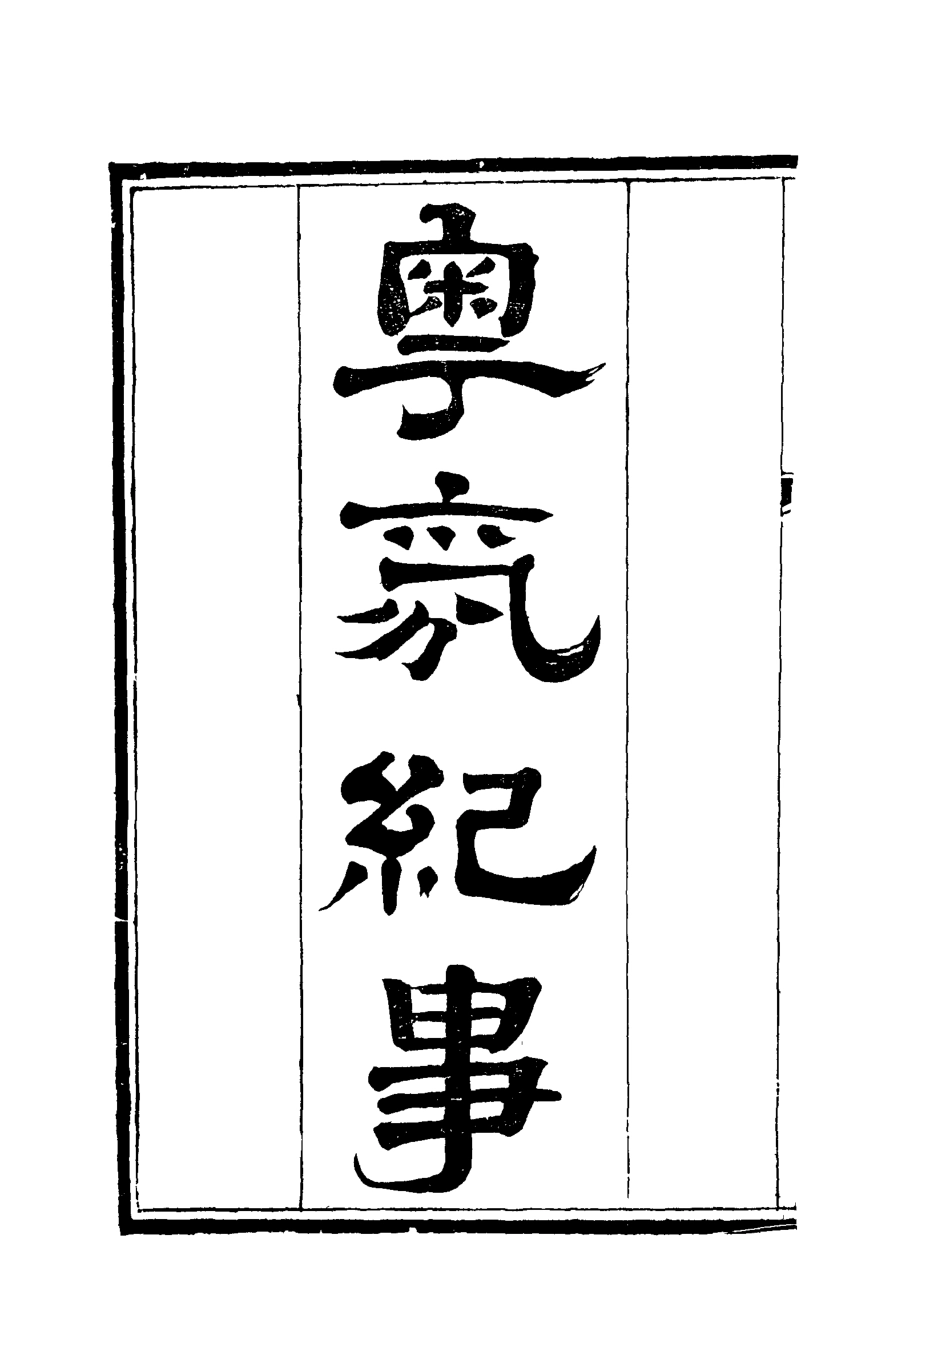 粵氛紀事